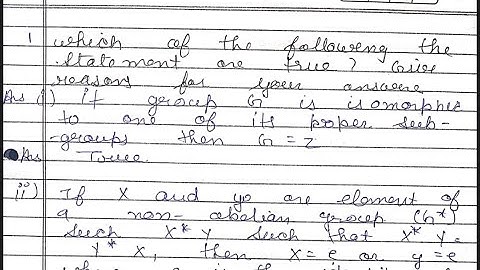 1 which of the following the
statement are true? Give
reasons for your answere
Ans (i) if group G is isomorphic
to one of its proper sub-
-groups then G = Z
Ans True
ii) If X and yo are element of
a non- abolian group (G*)
such X* Y such that X* Y =
Y* X, then X = e or y = e